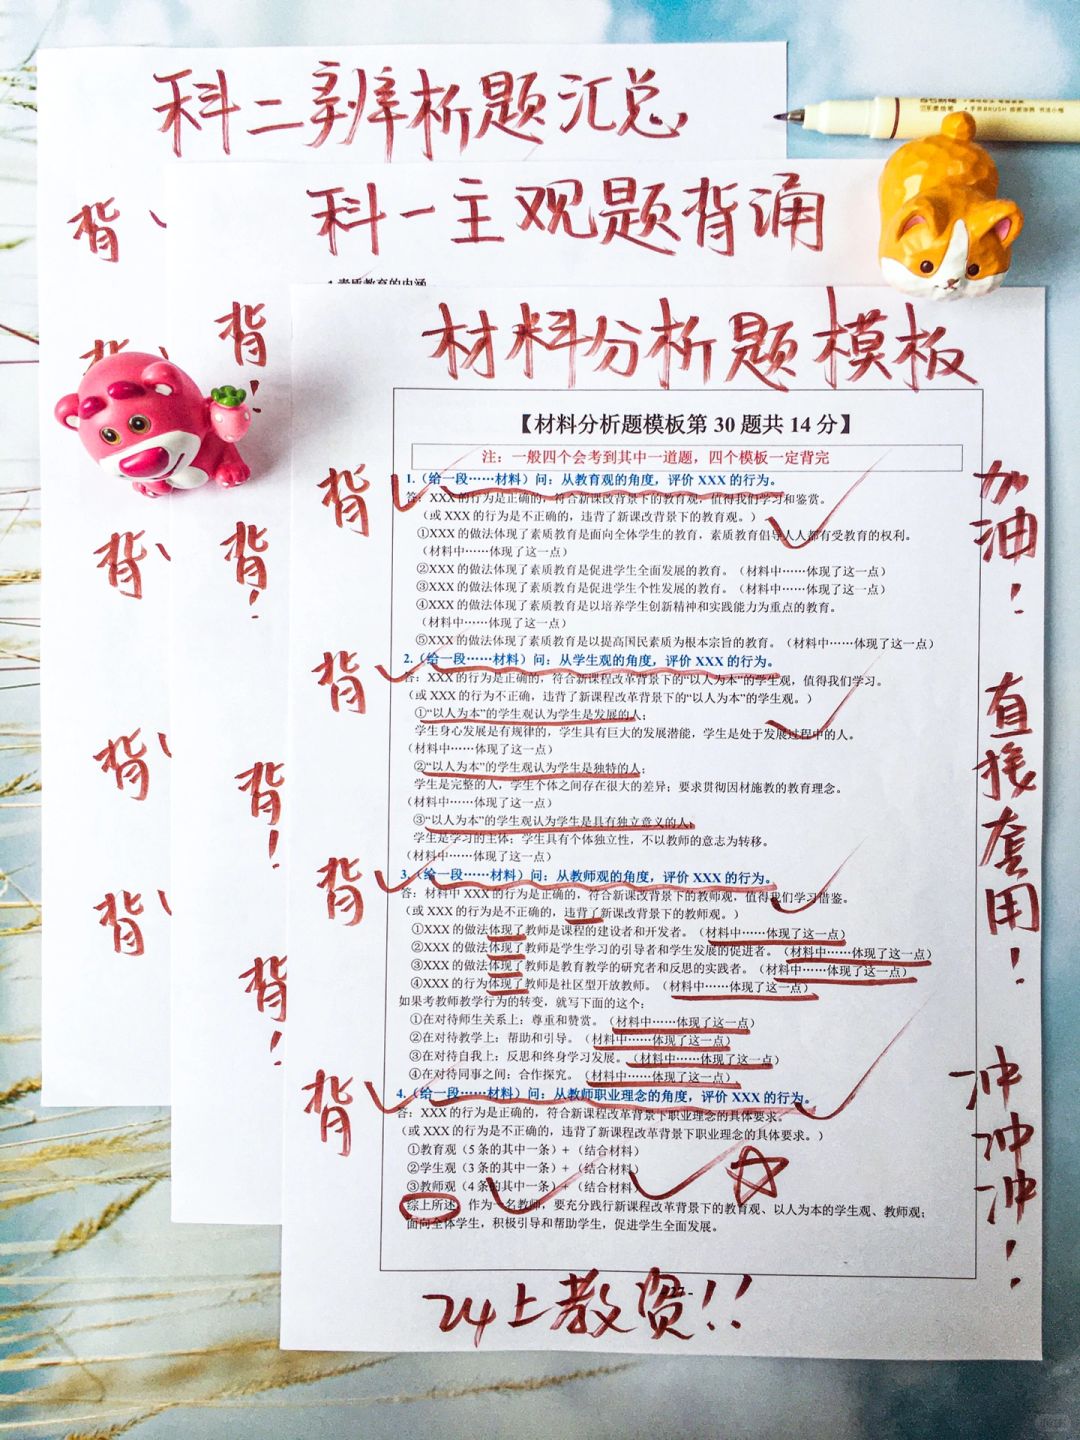 科二辨析题汇总
背
科一主观题背诵
背
背
背
背
背！
背！
背！
背！
材料分析题模板
【材料分析题模板第 30 题共 14 分】
注：一般四个会考到其中一道题，四个模板一定背完
背
1.（给一段……材料）问：从教育观的角度，评价 XXX 的行为。
答：XXX 的行为是正确的，符合新课改背景下的教育观，值得我们学习和鉴赏。
（或 XXX 的行为是不正确的，违背了新课改背景下的教育观。）
①XXX 的做法体现了素质教育是面向全体学生的教育，素质教育倡导人人都有受教育的权利。
（材料中……体现了这一点）
②XXX 的做法体现了素质教育是促进学生全面发展的教育。（材料中……体现了这一点）
③XXX 的做法体现了素质教育是促进学生个性发展的教育。（材料中……体现了这一点）
④XXX 的做法体现了素质教育是以培养学生创新精神和实践能力为重点的教育。
（材料中……体现了这一点）
⑤XXX 的做法体现了素质教育是以提高国民素质为根本宗旨的教育。（材料中……体现了这一点）
背
2.（给一段……材料）问：从学生观的角度，评价 XXX 的行为。
答：XXX 的行为是正确的，符合新课程改革背景下的“以人为本”的学生观，值得我们学习。
（或 XXX 的行为不正确，违背了新课程改革背景下的“以人为本”的学生观。）
①“以人为本”的学生观认为学生是发展的人；
学生身心发展是有规律的，学生具有巨大的发展潜能，学生是处于发展过程中的人。
（材料中……体现了这一点）
②“以人为本”的学生观认为学生是独特的人；
学生是完整的人，学生个体之间存在很大的差异；要求贯彻因材施教的教育理念。
（材料中……体现了这一点）
③“以人为本”的学生观认为学生是具有独立意义的人；
学生是学习的主体；学生具有个体独立性，不以教师的意志为转移。
（材料中……体现了这一点）
背
3.（给一段……材料）问：从教师观的角度，评价 XXX 的行为。
答：材料中 XXX 的行为是正确的，符合新课改背景下的教师观，值得我们学习借鉴。
（或 XXX 的行为是不正确的，违背了新课改背景下的教师观。）
①XXX 的做法体现了教师是课程的建设者和开发者。（材料中……体现了这一点）
②XXX 的做法体现了教师是学生学习的引导者和学生发展的促进者。（材料中……体现了这一点）
③XXX 的做法体现了教师是教育教学的研究者和反思的实践者。（材料中……体现了这一点）
④XXX 的行为体现了教师是社区型开放教师。（材料中……体现了这一点）
如果考教师教学行为的转变，就写下面的这个：
①在对待师生关系上：尊重和赞赏。（材料中……体现了这一点）
②在对待教学上：帮助和引导。（材料中……体现了这一点）
③在对待自我上：反思和终身学习发展。（材料中……体现了这一点）
④在对待同事之间：合作探究。（材料中……体现了这一点）
背
4.（给一段……材料）问：从教师职业理念的角度，评价 XXX 的行为。
答：XXX 的行为是正确的，符合新课程改革背景下职业理念的具体要求。
（或 XXX 的行为是不正确的，违背了新课程改革背景下职业理念的具体要求。）
①教育观（5 条的其中一条）+（结合材料）
②学生观（3 条的其中一条）+（结合材料）
③教师观（4 条的其中一条）+（结合材料）
综上所述，作为一名教师，要充分践行新课程改革背景下的教育观、以人为本的学生观、教师观；
面向全体学生，积极引导和帮助学生，促进学生全面发展。
加油！
直接套用！
冲冲冲！
24上教资！！